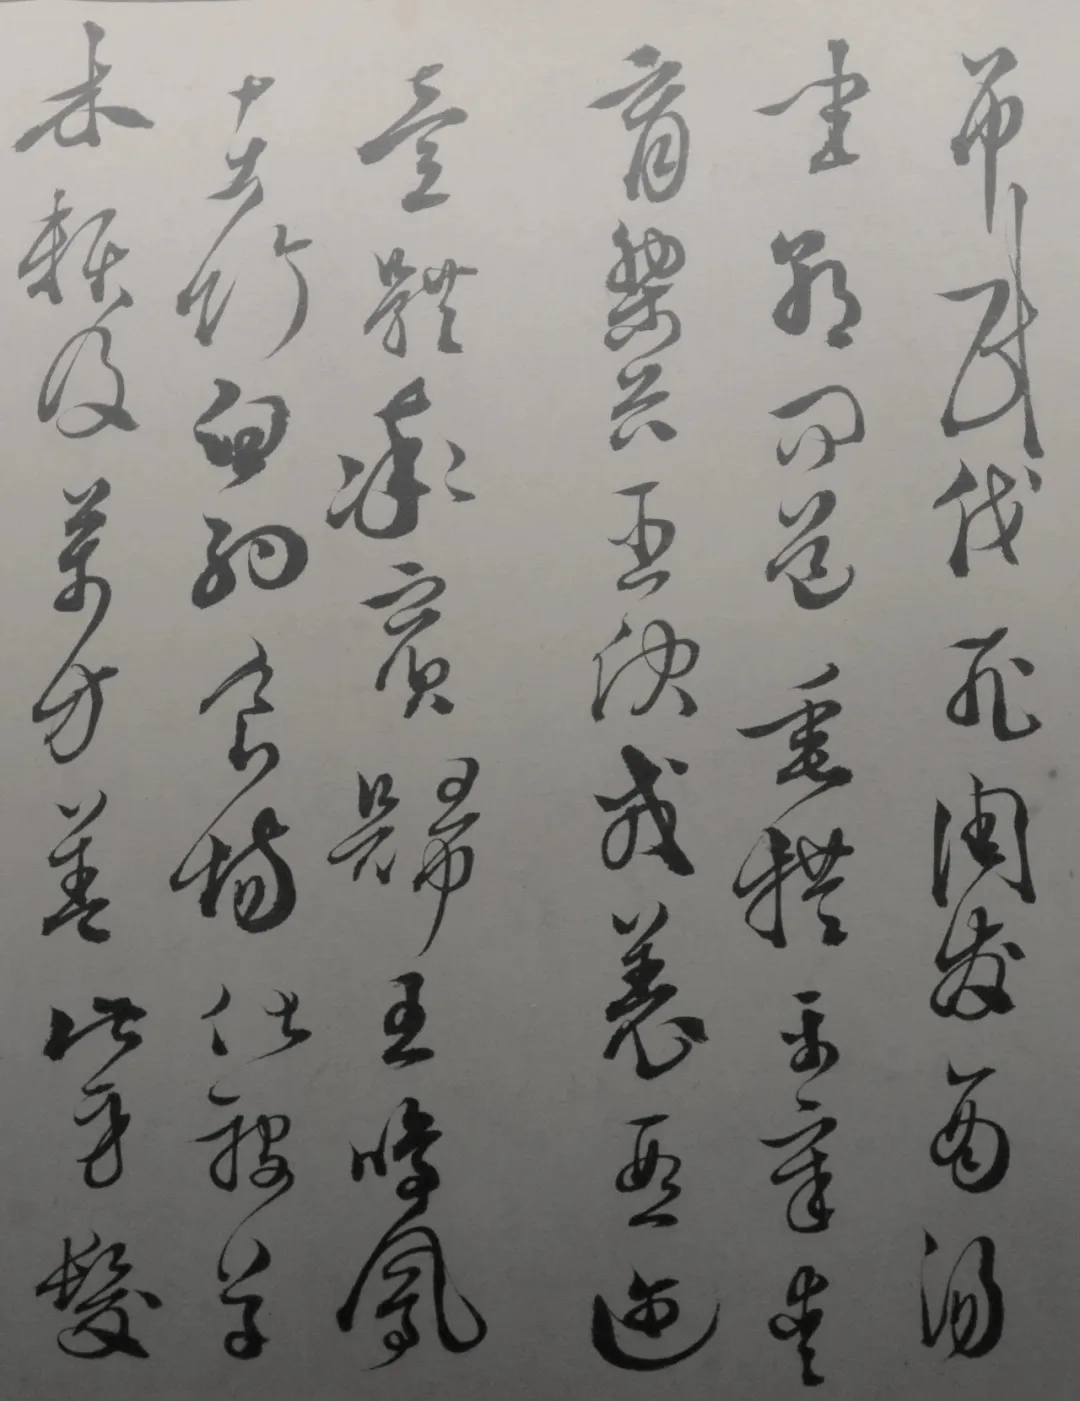 吊民伐罪周發商湯
坐朝問道垂拱平章愛
育黎首臣伏戎羌遐邇
壹體率賓歸王鳴鳳
在竹白駒食場化被草
木賴及萬方蓋此身髮